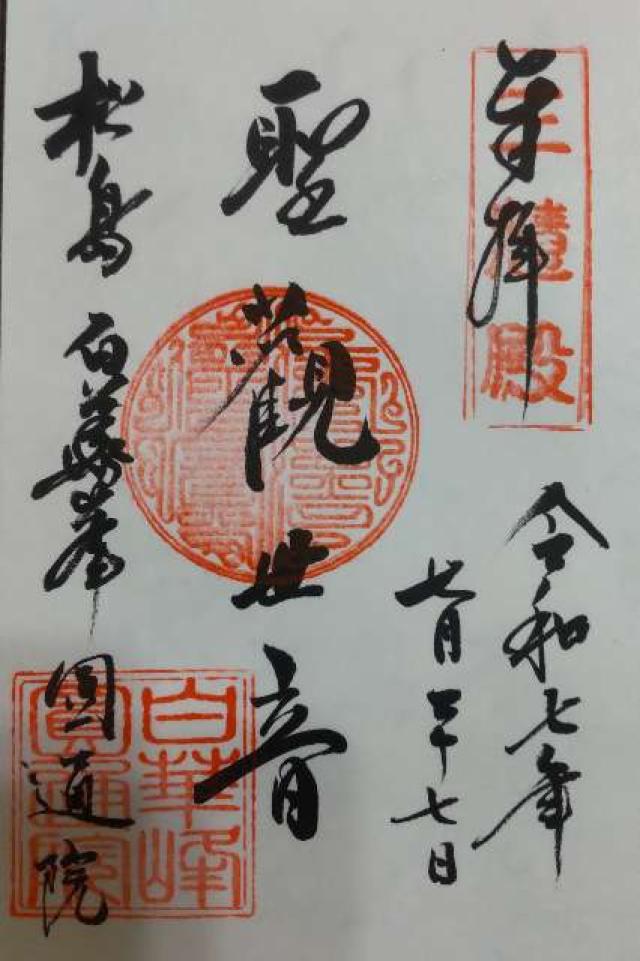 奉拝
三慧殿
令和七年
七月二十七日
聖観世音
松島 白華峯 圓通院
白華峰
圓通院